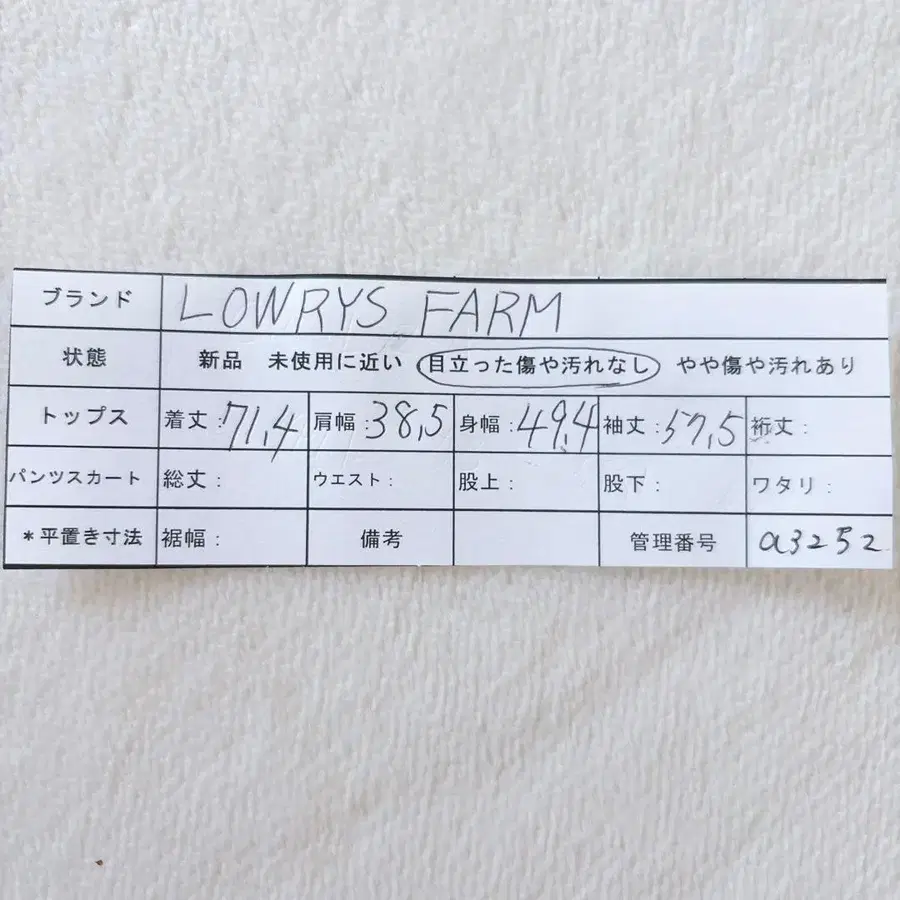 ブランド LOWRYS FARM
状態 新品 未使用に近い 目立った傷や汚れなし やや傷や汚れあり
トップス 着丈:71,4 肩幅:38,5 身幅:49,4 袖丈:57,5 裄丈:
パンツスカート 総丈: ウエスト: 股上: 股下: ワタリ:
*平置き寸法 裾幅: 備考 管理番号 a3252